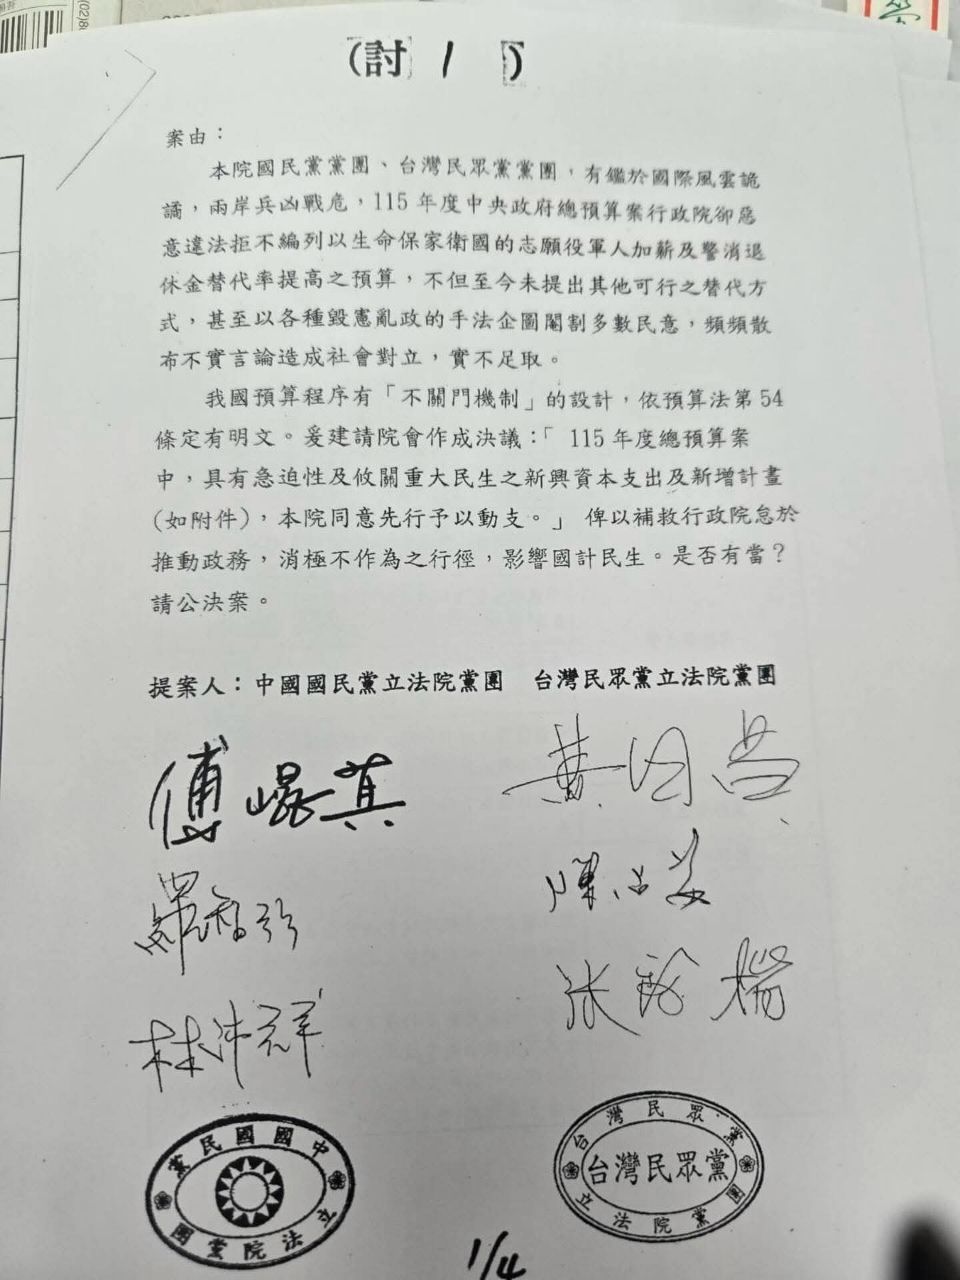 (討 1 )
案由：
本院國民黨黨團、台灣民眾黨黨團，有鑑於國際風雲詭
譎，兩岸兵凶戰危，115 年度中央政府總預算案行政院卻惡
意違法拒不編列以生命保家衛國的志願役軍人加薪及警消退
休金替代率提高之預算，不但至今未提出其他可行之替代方
式，甚至以各種毀憲亂政的手法企圖閹割多數民意，頻頻散
布不實言論造成社會對立，實不足取。
我國預算程序有「不關門機制」的設計，依預算法第 54
條定有明文。爰建請院會作成決議：「 115 年度總預算案
中，具有急迫性及攸關重大民生之新興資本支出及新增計畫
(如附件)，本院同意先行予以動支。」 俾以補救行政院怠於
推動政務，消極不作為之行徑，影響國計民生。是否有當？
請公決案。
提案人：中國國民黨立法院黨團 台灣民眾黨立法院黨團
傅崐萁 黃國昌
羅智強
林沛祥 張啓楷
中國國民黨
立法院黨團
台灣民眾黨
台灣民眾黨
立法院黨團
1/4